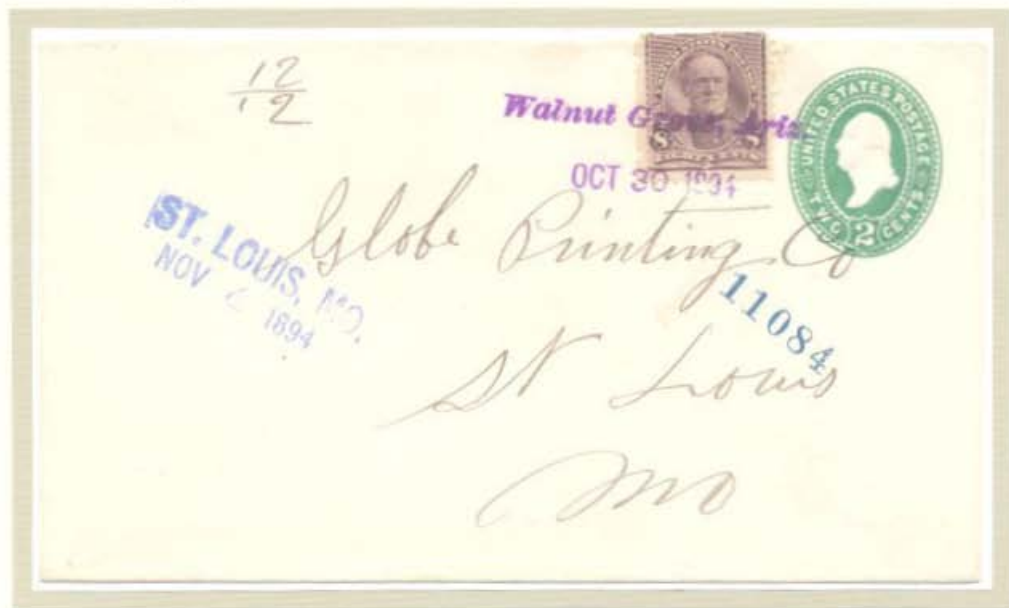 12
12
Walnut Grove, Ariz.
OCT 30 1894
8 8
UNITED STATES POSTAGE
2 CENTS
ST. LOUIS, MO.
NOV 1894
Globe Printing Co
11084
St Louis
Mo